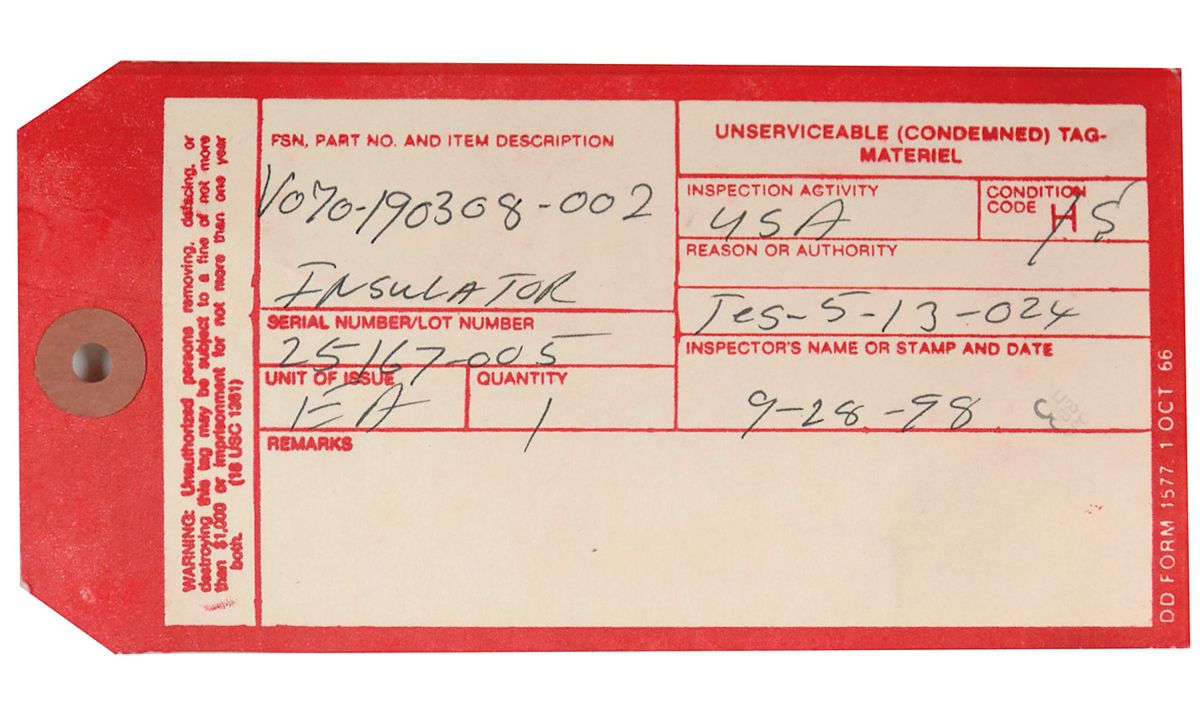 WARNING: Unauthorized persons removing, defacing, or
destroying this tag may be subject to a fine of not more
than $1,000 or imprisonment for not more than one year
both.
(18 USC 1361)
FSN, PART NO. AND ITEM DESCRIPTION
V070-190308-002
INSULATOR
SERIAL NUMBER/LOT NUMBER
25167-005
UNIT OF ISSUE
EA
QUANTITY
1
REMARKS
UNSERVICEABLE (CONDEMNED) TAG-
MATERIEL
INSPECTION ACTIVITY
USA
CONDITION
CODE H
S
REASON OR AUTHORITY
Tes-5-13-024
INSPECTOR'S NAME OR STAMP AND DATE
9-28-98
DD FORM 1577, 1 OCT 66